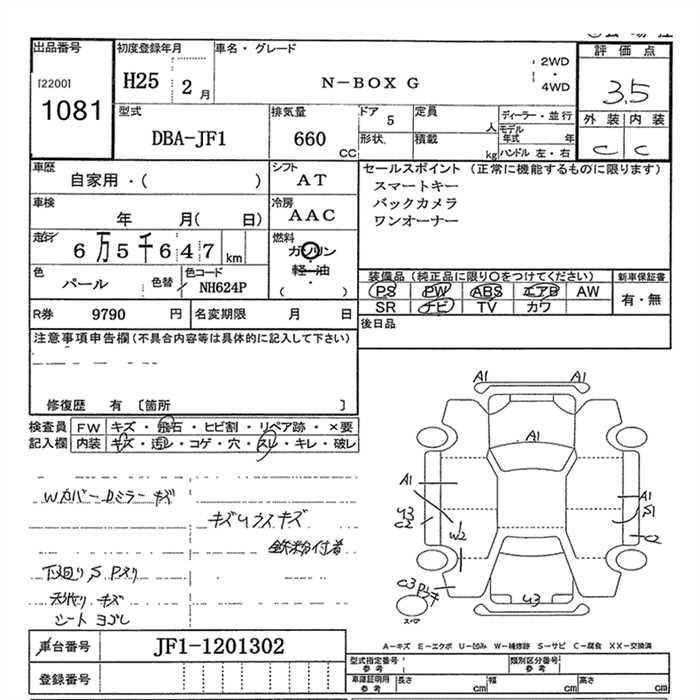 出品番号
[2200]
1081
初度登録年月
H25 2月
車名・グレード
N-BOX G
2WD
・
4WD
評価点
3.5
外装 内装
C C
型式
DBA-JF1
排気量
660 CC
ドア 5
形状
定員 人
積載 kg
ディーラー・並行
モデル年式 年
ハンドル 左・右
車歴
自家用・( )
シフト
AT
車検
年 月( 日)
冷房
AAC
走行
6万5千647 km
燃料
ガソリン
軽・油
( )
色
パール
色替
色コード
NH624P
R券 9790 円
名変期限 月 日
セールスポイント (正常に機能するものに限ります)
スマートキー
バックカメラ
ワンオーナー
装備品 (純正品に限り○をつけてください)
PS PW ABS エアB AW
SR ナビ TV カワ
新車保証書
有・無
後日品
注意事項申告欄(不具合内容等は具体的に記入して下さい)
修復歴 有 〔箇所 〕
検査員記入欄
FW キズ・飛石・ヒビ割・リペア跡・×要
内装 キズ・汚レ・コゲ・穴・スレ・キレ・破レ
Wカバー Dミラー キズ
キズWウスキズ
鉄粉付着
下廻りS Pスリ
天張り キズ
シート ヨゴレ
A1
A1
A1
A1
U3
C2
W2
A1
S1
C2
C3
U3
スペア
車台番号 JF1-1201302
登録番号
A-キズ E-エクボ U-凹み W-補修跡 S-サビ C-腐食 XX-交換済
型式指定番号 参考
類別区分番号 参考
車庫証明用 参考
長さ cm
幅 cm
高さ cm